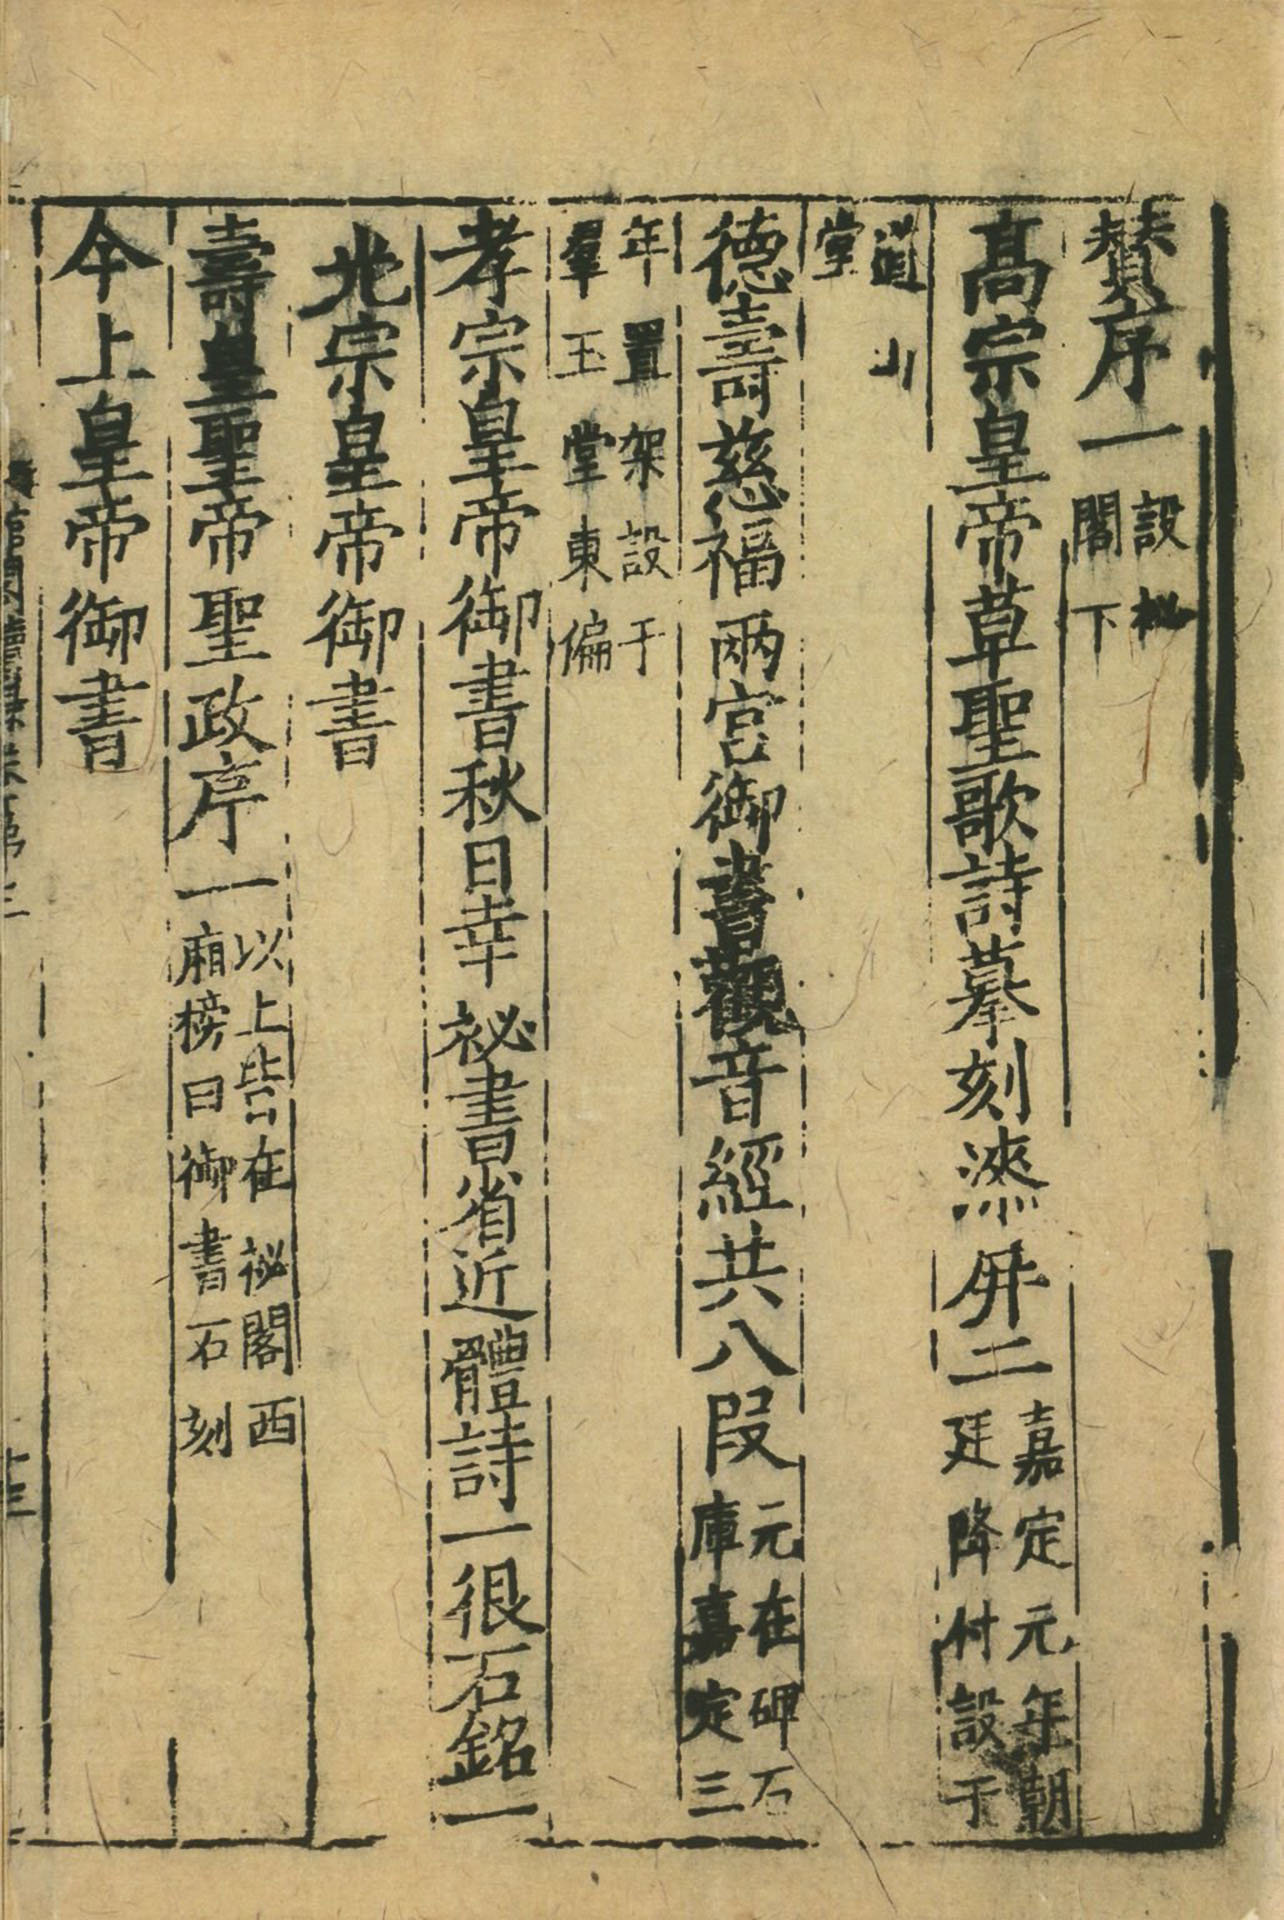 賛序一設祕閣下
髙宗皇帝草聖歌詩摹刻漆屏二嘉定元年朝廷降付設于
道山堂
德壽慈福兩宫御書觀音經共八段元在碑石庫嘉定三
年置架設于羣玉堂東偏
孝宗皇帝御書秋日幸祕書省近體詩一很石銘一
光宗皇帝御書
壽皇聖帝聖政序一以上皆在祕閣西廂榜曰御書石刻
今上皇帝御書
十三